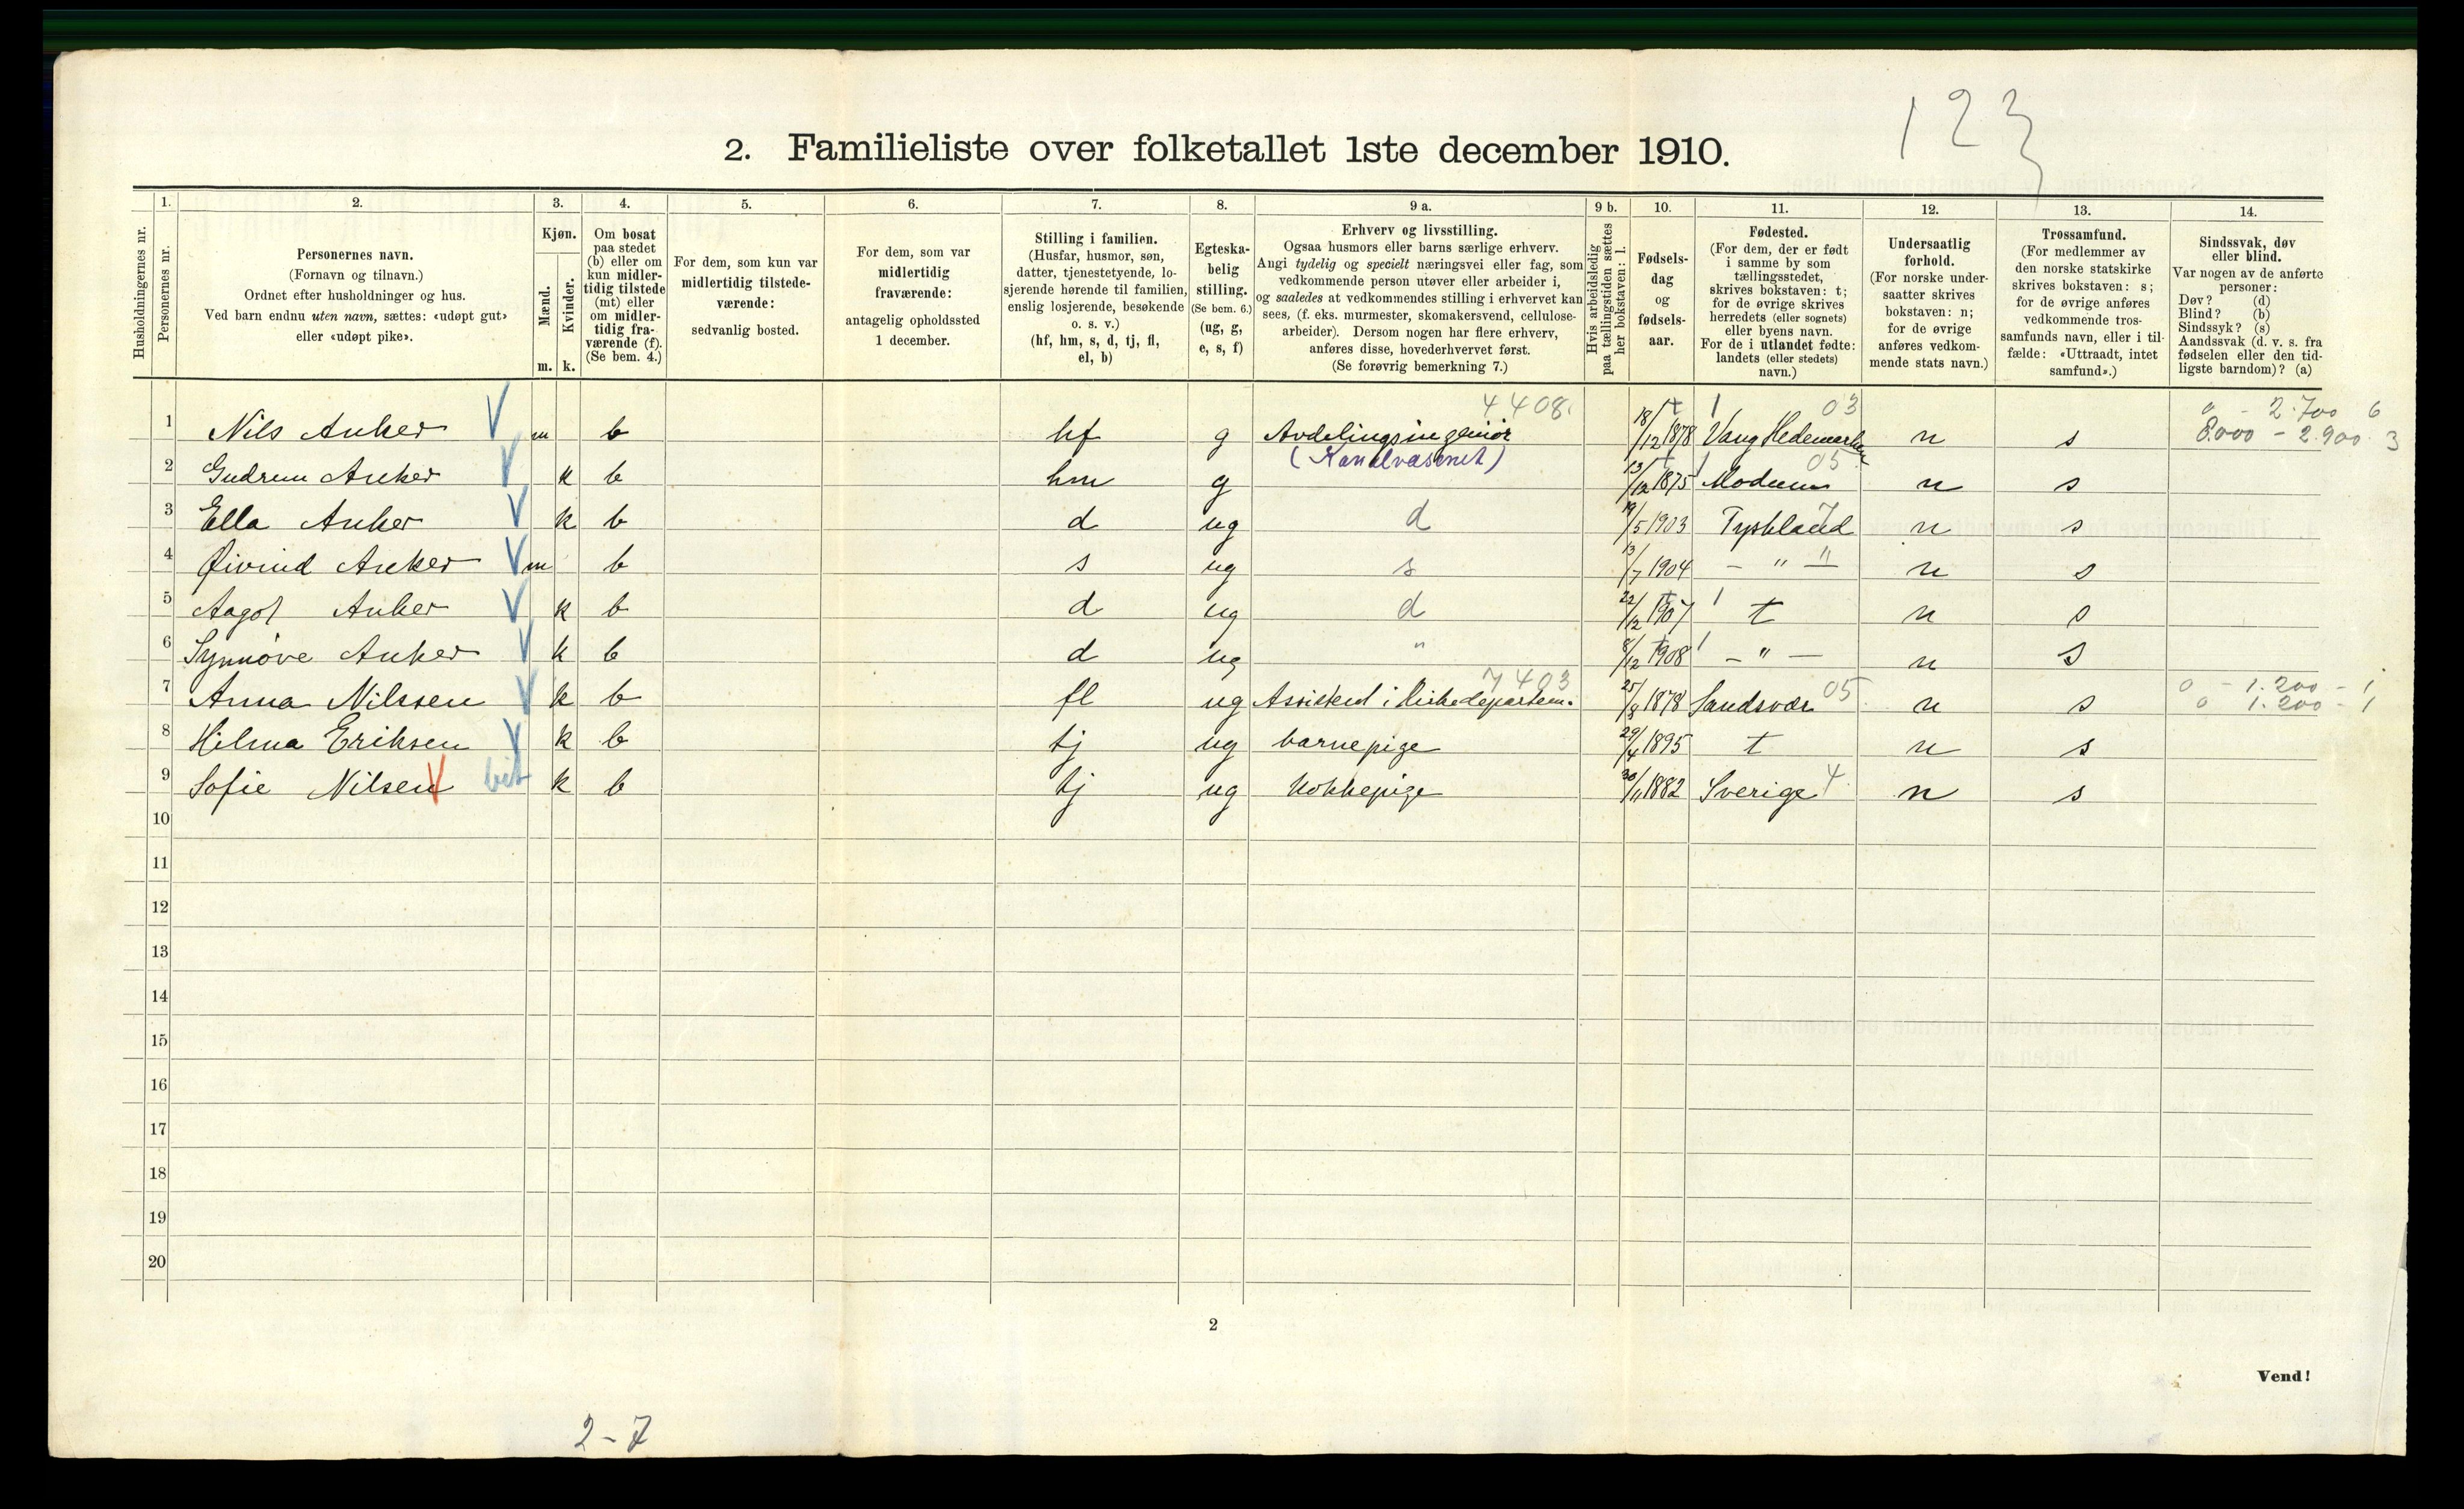 123
2. Familieliste over folketallet 1ste december 1910.
Husholdningernes nr.
1. Personernes nr.
2. Personernes navn.
(Fornavn og tilnavn.)
Ordnet efter husholdninger og hus.
Ved barn endnu uten navn, sættes: «udøpt gut»
eller «udøpt pike».
3. Kjøn.
Mænd. m.
Kvinder. k.
4. Om bosat
paa stedet
(b) eller om
kun midler-
tidig tilstede
(mt) eller
om midler-
tidig fra-
værende (f).
(Se bem. 4.)
5. For dem, som kun var
midlertidig tilstede-
værende:
sedvanlig bosted.
6. For dem, som var
midlertidig
fraværende:
antagelig opholdssted
1 december.
7. Stilling i familien.
(Husfar, husmor, søn,
datter, tjenestetyende, lo-
sjerende hørende til familien,
enslig losjerende, besøkende
o. s. v.)
(hf, hm, s, d, tj, fl,
el, b)
8. Egteska-
belig
stilling.
(Se bem. 6.)
(ug, g,
e, s, f)
9 a. Erhverv og livsstilling.
Ogsaa husmors eller barns særlige erhverv.
Angi tydelig og specielt næringsvei eller fag, som
vedkommende person utøver eller arbeider i,
og saaledes at vedkommendes stilling i erhvervet kan
sees, (f. eks. murmester, skomakersvend, cellulose-
arbeider). Dersom nogen har flere erhverv,
anføres disse, hovederhvervet først.
(Se forøvrig bemerkning 7.)
9 b. Hvis arbeidsledig
paa tællingstiden sættes
her bokstaven: l.
10. Fødsels-
dag
og
fødsels-
aar.
11. Fødested.
(For dem, der er født
i samme by som
tællingsstedet,
skrives bokstaven: t;
for de øvrige skrives
herredets (eller sognets)
eller byens navn.
For de i utlandet fødte:
landets (eller stedets)
navn.)
12. Undersaatlig
forhold.
(For norske under-
saatter skrives
bokstaven: n;
for de øvrige
anføres vedkom-
mende stats navn.)
13. Trossamfund.
(For medlemmer av
den norske statskirke
skrives bokstaven: s;
for de øvrige anføres
vedkommende tros-
samfunds navn, eller i til-
fælde: «Uttraadt, intet
samfund».)
14. Sindssvak, døv
eller blind.
Var nogen av de anførte
personer:
Døv? (d)
Blind? (b)
Sindssyk? (s)
Aandssvak (d. v. s. fra
fødselen eller den tid-
ligste barndom)? (a)
4408. 03 0 - 2.700 6
1 Nils Anker V m b hf g Avdelingsingeniør 18/12 1878 Vang Hedemarken n s 8.000 - 2.900 3
(Kanalvæsenet) 05
2 Gudrun Anker V k b hm g 13/12 1875 Modum n s
3 Ella Anker V k b d ug d 19/5 1903 Tyskland 7 n s
4 Øivind Anker V m b s ug s 13/7 1904 - " - n s
5 Aagot Anker V k b d ug d 22/12 1907 t n s
6 Synnøve Anker V k b d ug " 8/12 1908 - " - n s
7403 0 - 1.200 - 1
7 Anna Nilssen V k b fl ug Assistent i Kirkedepartem. 25/8 1878 Sandsvær 05 n s 0 1.200 - 1
8 Hilma Eriksen V k b tj ug barnepige 29/4 1895 t n s
9 Sofie Nilsen V k b tj ug Kokkepige 30/11 1882 Sverige 4 n s
10
11
12
13
14
15
16
17
18
19
20
2
Vend!
2-7